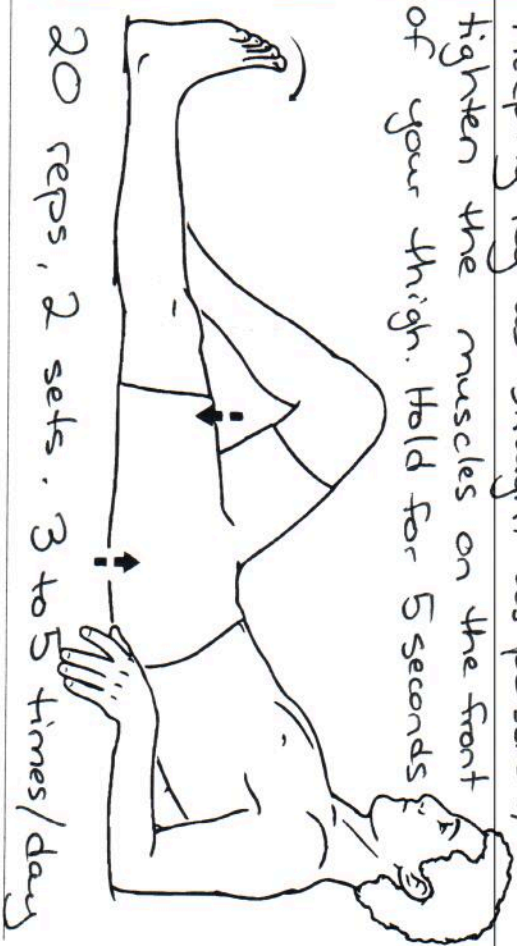 tighten the muscles on the front
of your thigh. Hold for 5 seconds
20 reps, 2 sets. 3 to 5 times/day